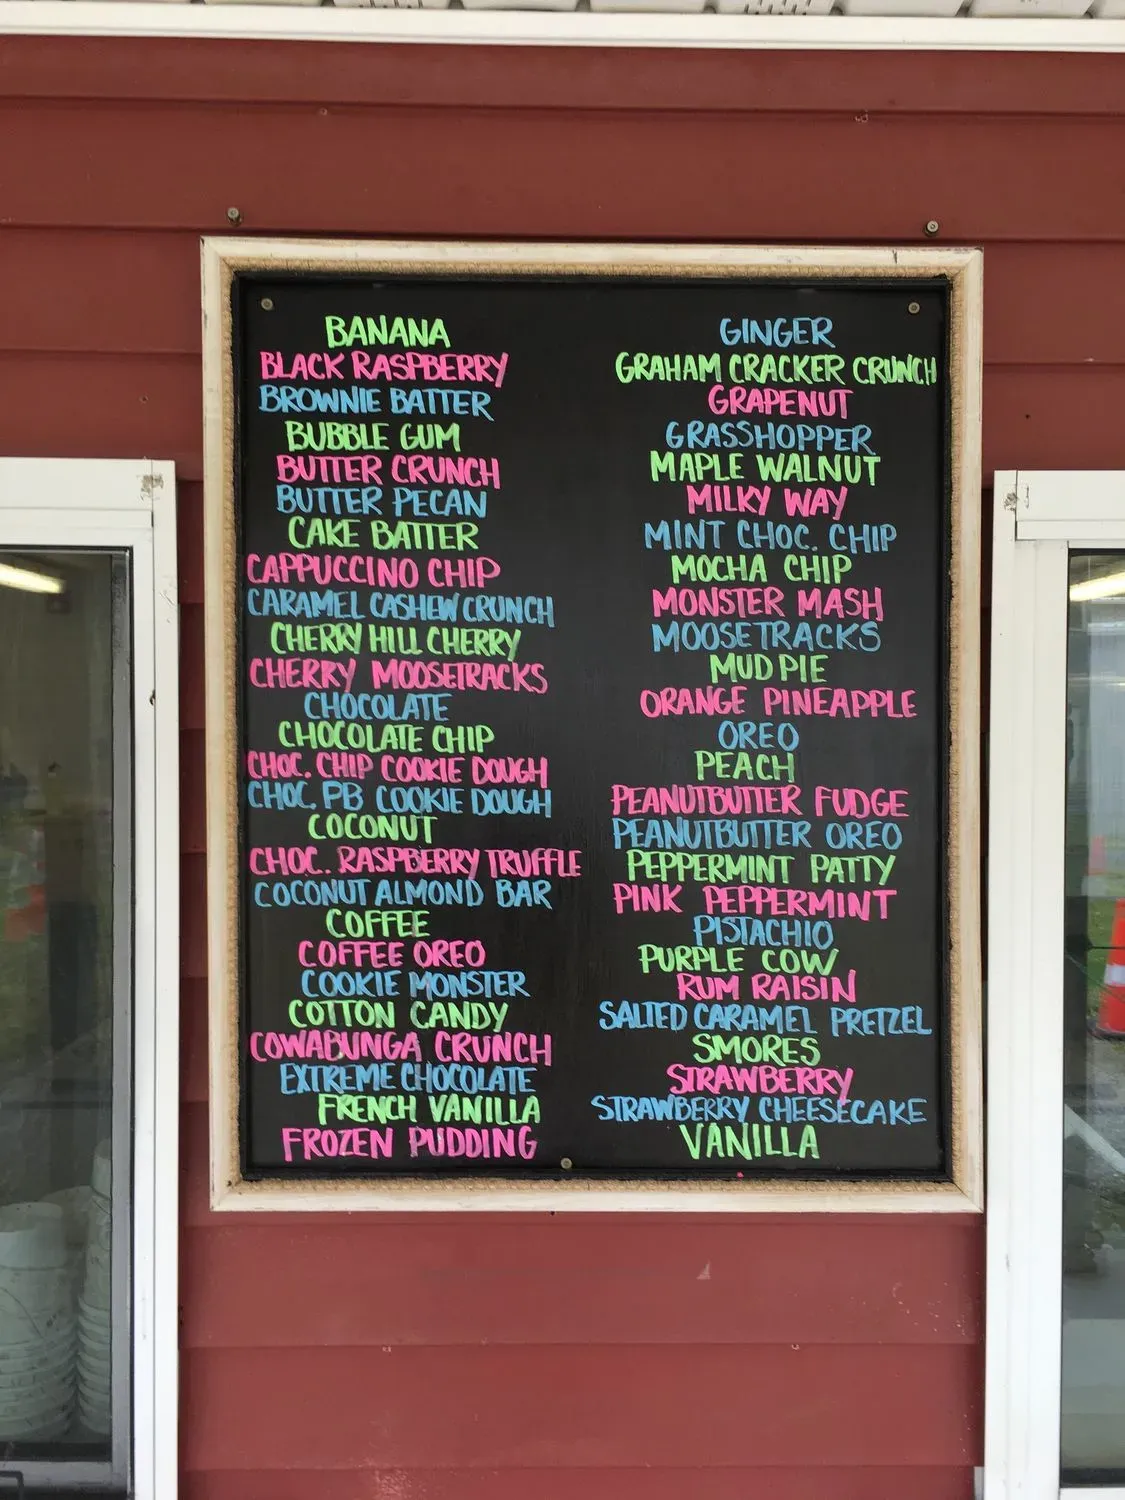 BANANA
BLACK RASPBERRY
BROWNIE BATTER
BUBBLE GUM
BUTTER CRUNCH
BUTTER PECAN
CAKE BATTER
CAPPUCCINO CHIP
CARAMEL CASHEW CRUNCH
CHERRY HILL CHERRY
CHERRY MOOSETRACKS
CHOCOLATE
CHOCOLATE CHIP
CHOC. CHIP COOKIE DOUGH
CHOC. PB COOKIE DOUGH
COCONUT
CHOC. RASPBERRY TRUFFLE
COCONUT ALMOND BAR
COFFEE
COFFEE OREO
COOKIE MONSTER
COTTON CANDY
COWABUNGA CRUNCH
EXTREME CHOCOLATE
FRENCH VANILLA
FROZEN PUDDING
GINGER
GRAHAM CRACKER CRUNCH
GRAPENUT
GRASSHOPPER
MAPLE WALNUT
MILKY WAY
MINT CHOC. CHIP
MOCHA CHIP
MONSTER MASH
MOOSETRACKS
MUD PIE
ORANGE PINEAPPLE
OREO
PEACH
PEANUTBUTTER FUDGE
PEANUTBUTTER OREO
PEPPERMINT PATTY
PINK PEPPERMINT
PISTACHIO
PURPLE COW
RUM RAISIN
SALTED CARAMEL PRETZEL
SMORES
STRAWBERRY
STRAWBERRY CHEESECAKE
VANILLA